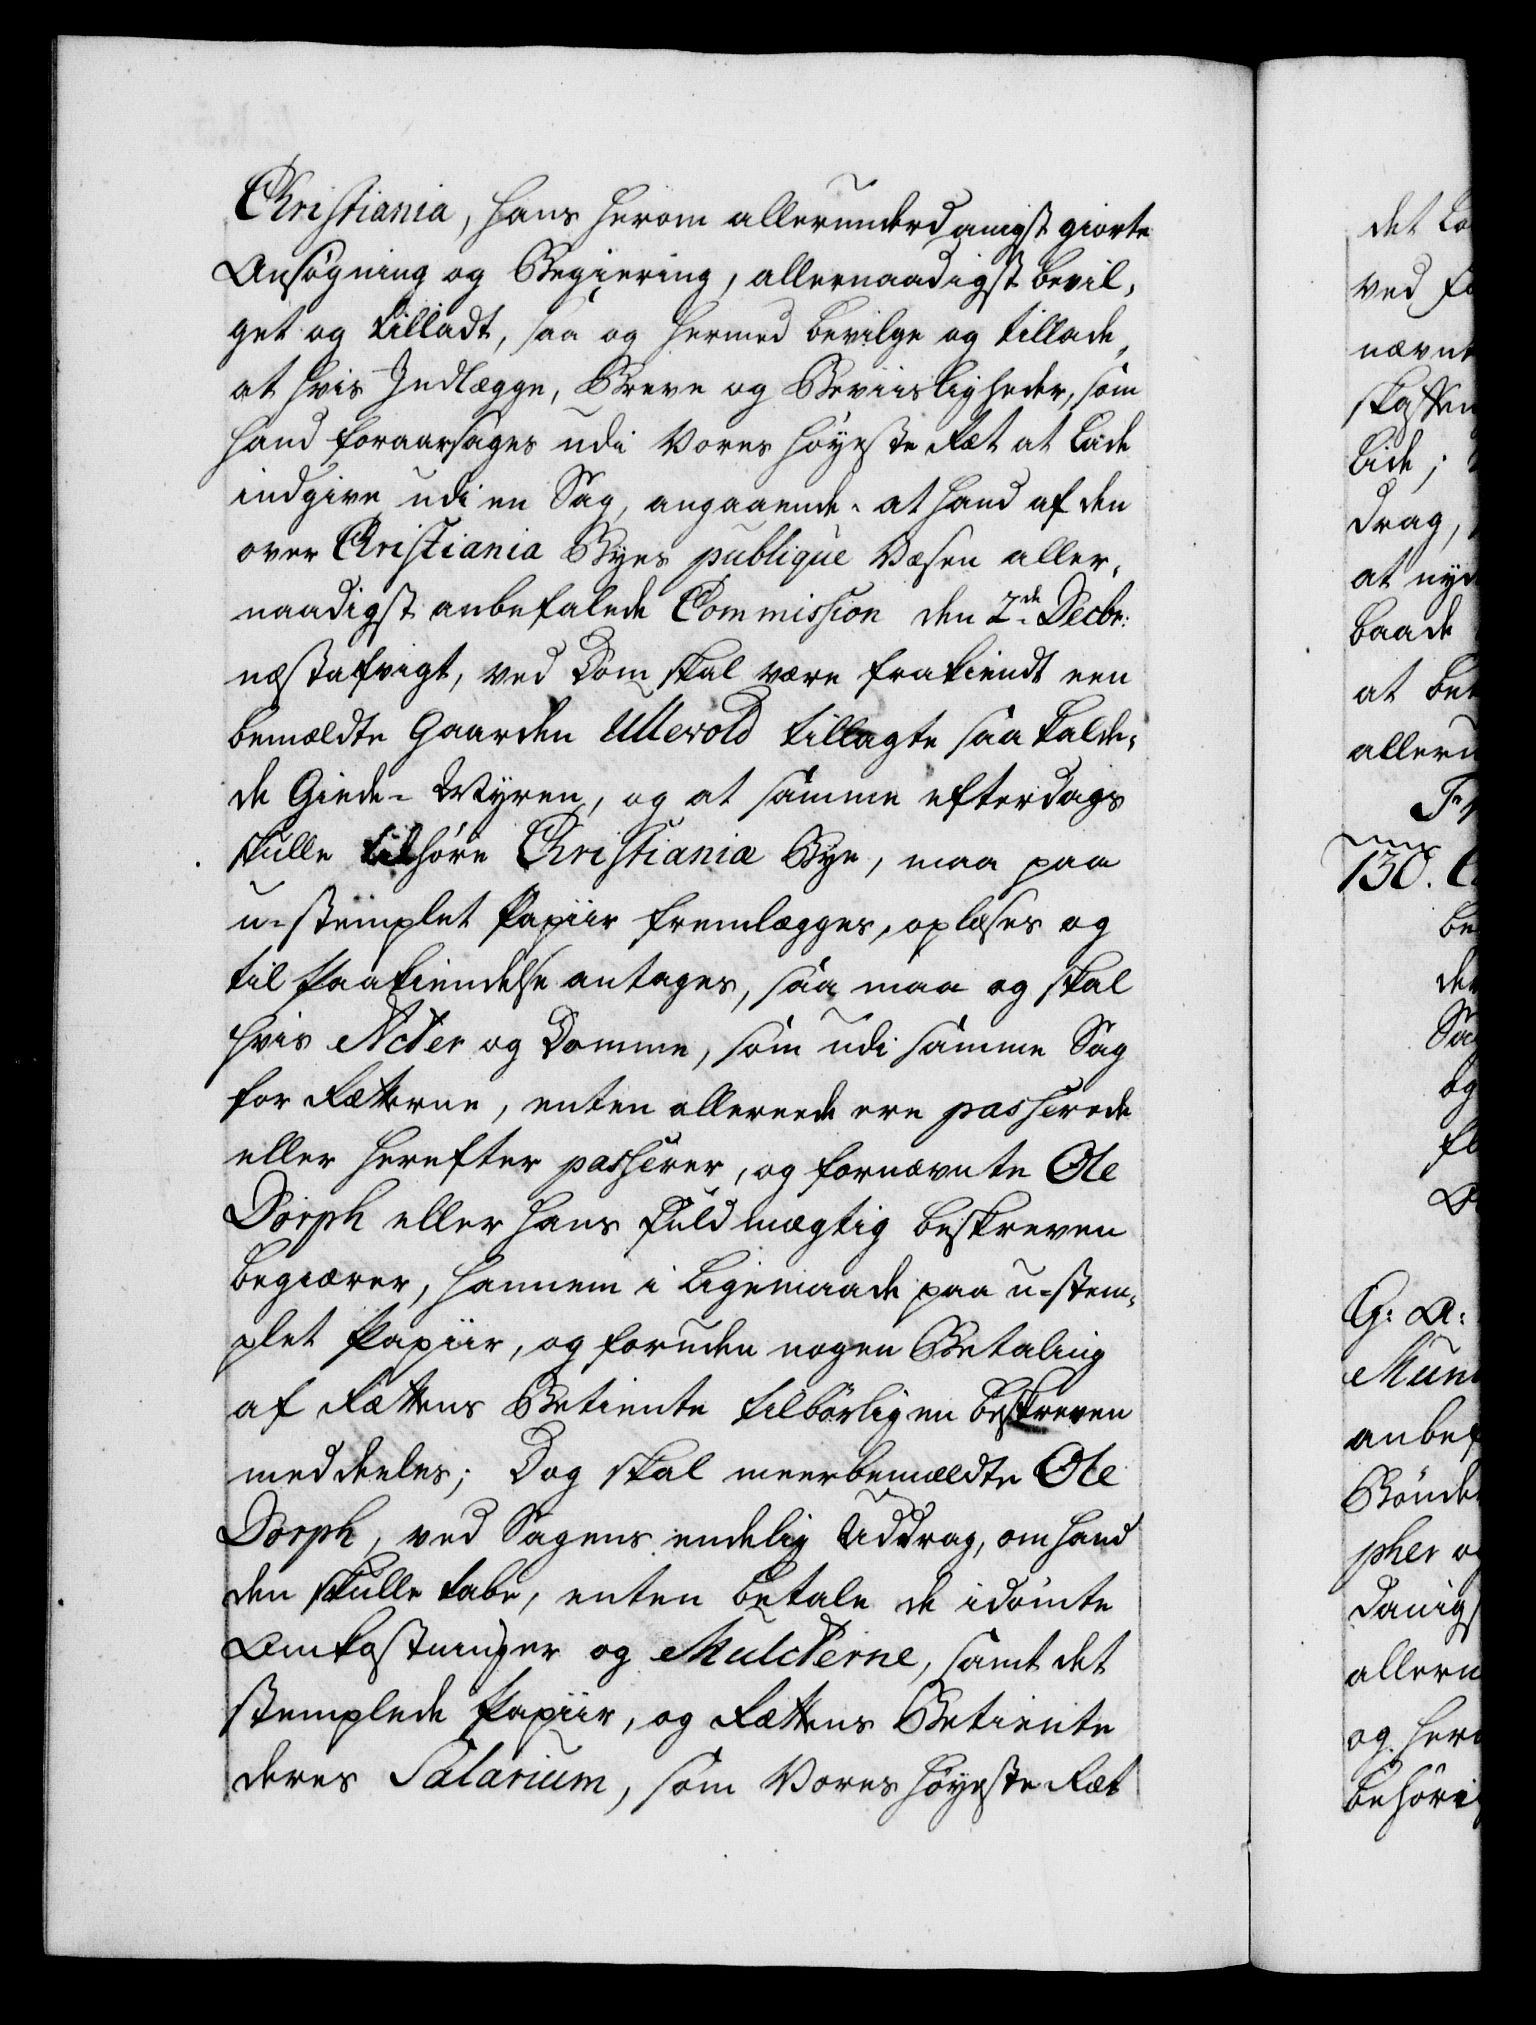 Christiania, hans herom allerunderdanigst giorte
Ansøgning og Begiering, allernaadigst bevil-
get og tilladt, saa og hermed bevilge og tillade,
at hvis Indlægge, Breve og Beviisligheder, som
hand foraarsages udi Vores Høyeste Ræt at lade
indgive udi en Sag, angaaende, at hand af den
over Christiania Byes publique Væsen aller-
naadigst anbefalede Commission den 2de Decbr:
næstafvigt, ved Dom skal være frakiendt een
bemældte Gaarden Ullevold tillagte saa kalde-
de Giede-Myren, og at samme efterdags
skulle tilhøre Christiania Bye, maa paa
u-stemplet Papiir fremlægges, oplæses og
til Paakiendelse antages, saa maa og skal
hvis Acter og Domme, som udi samme Sag
for Rætterne, enten allereede ere passerede
eller herefter passerer, og fornævnte Ole
Dorph eller hans Fuldmægtig beskreven
begiærer, hannem i ligemaade paa u-stem-
plet Papiir, og foruden nogen Betaling
af Rættens Betiente tilbørligen beskreven
meddeeles; Dog skal meerbemældte Ole
Dorph, ved Sagens endelig Uddrag, om hand
den skulle tabe, enten betale de idømte
Omkostninger og Mulcterne, samt det
stemplede Papiir, og Rættens Betiente
deres Salarium, som Vores Høyeste Ræt
det
ved
nævnt
lide;
drag,
at
baade
at
130.
G: A:
og